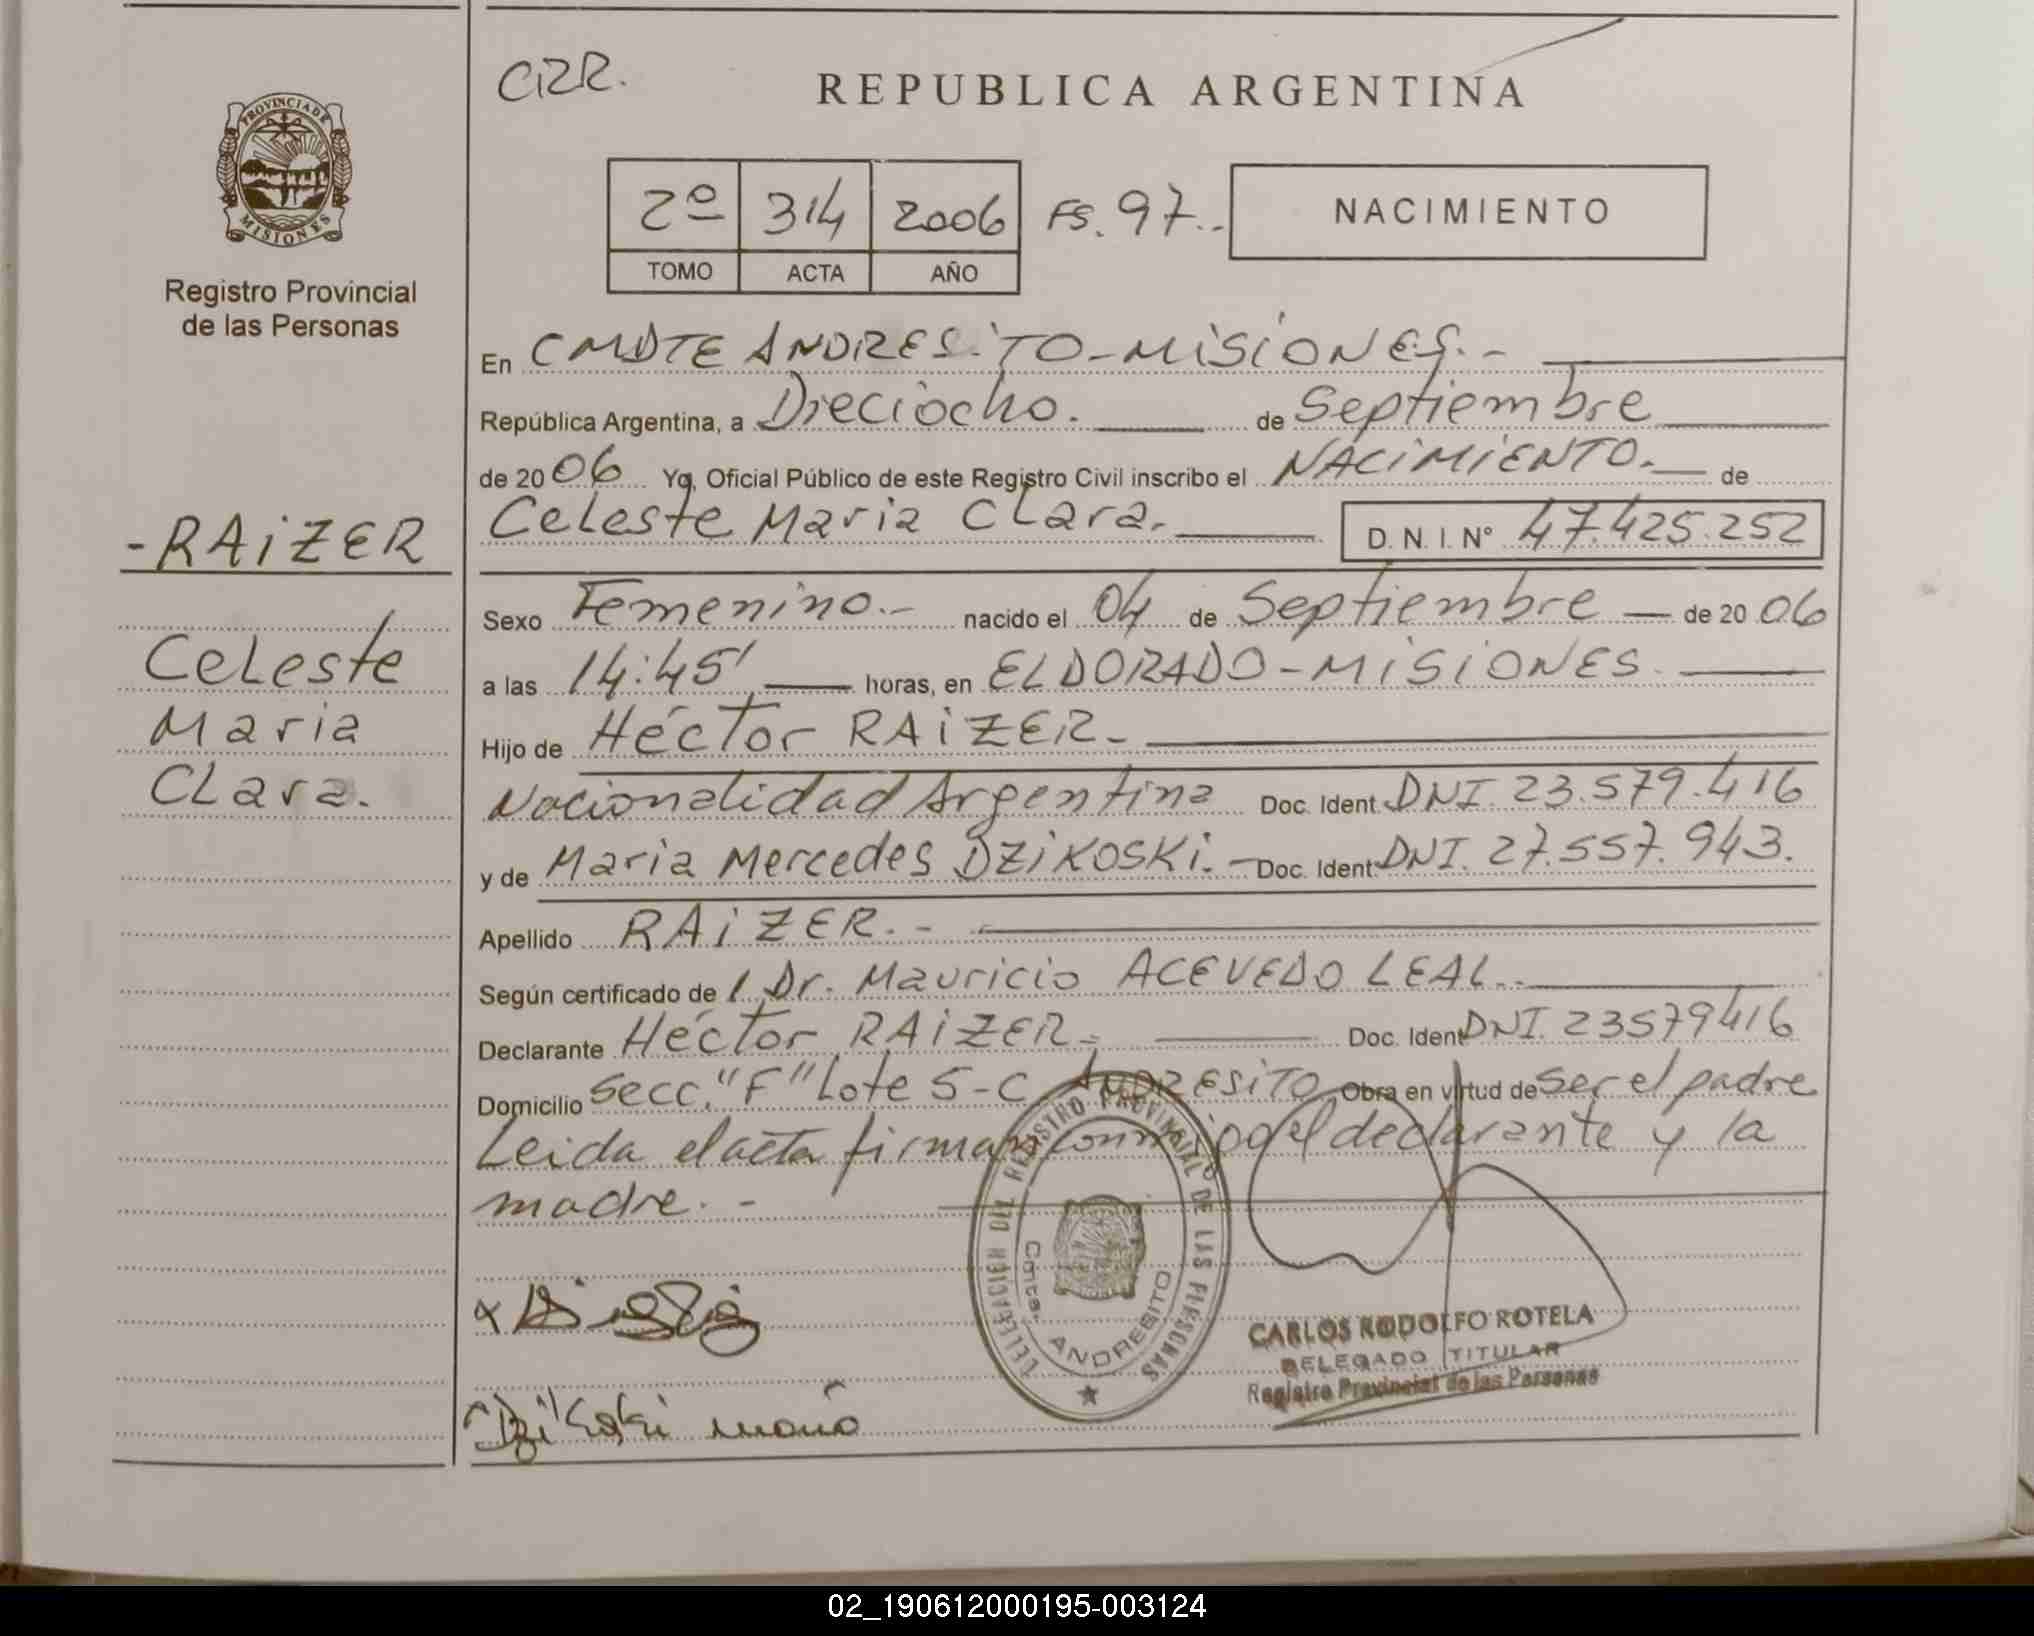 CRR.
REPUBLICA ARGENTINA
PROVINCIA DE
MISIONES
Registro Provincial
de las Personas
2º 314 2006 FS. 97.-
TOMO ACTA AÑO
NACIMIENTO
En CMDTE ANDRESiTO-MiSiONES.-
República Argentina, a Dieciocho. de Septiembre
de 2006 Yo, Oficial Público de este Registro Civil inscribo el NACiMiENTO.- de
Celeste Maria Clara. D. N. I. Nº 47.425.252
-RAiZER
Celeste
Maria
Clara.
Sexo Femenino.- nacido el 04 de Septiembre de 2006
a las 14:45' horas, en ELDORADO-MiSiONES.
Hijo de Héctor RAiZER-
Nacionalidad Argentina Doc. Ident. DNI. 23.579.416
y de Maria Mercedes DZiKOSKi.- Doc. Ident. DNI. 27.557.943.
Apellido RAiZER.-
Según certificado de / Dr. Mauricio ACEVEDO LEAL.-
Declarante Héctor RAiZER- Doc. Ident DNI. 23579416
Domicilio Secc. "F" Lote 5-C ANDRESiTO Obra en virtud de Ser el padre
Leida el acta firman conmigo el declarante y la
madre.-
DELEGACION DEL REGISTRO PROVINCIAL DE LAS PERSONAS
Cmte. ANDRESITO
Dzikoski Maria
CARLOS RODOLFO ROTELA
DELEGADO TITULAR
Registro Provincial de las Personas
02_190612000195-003124